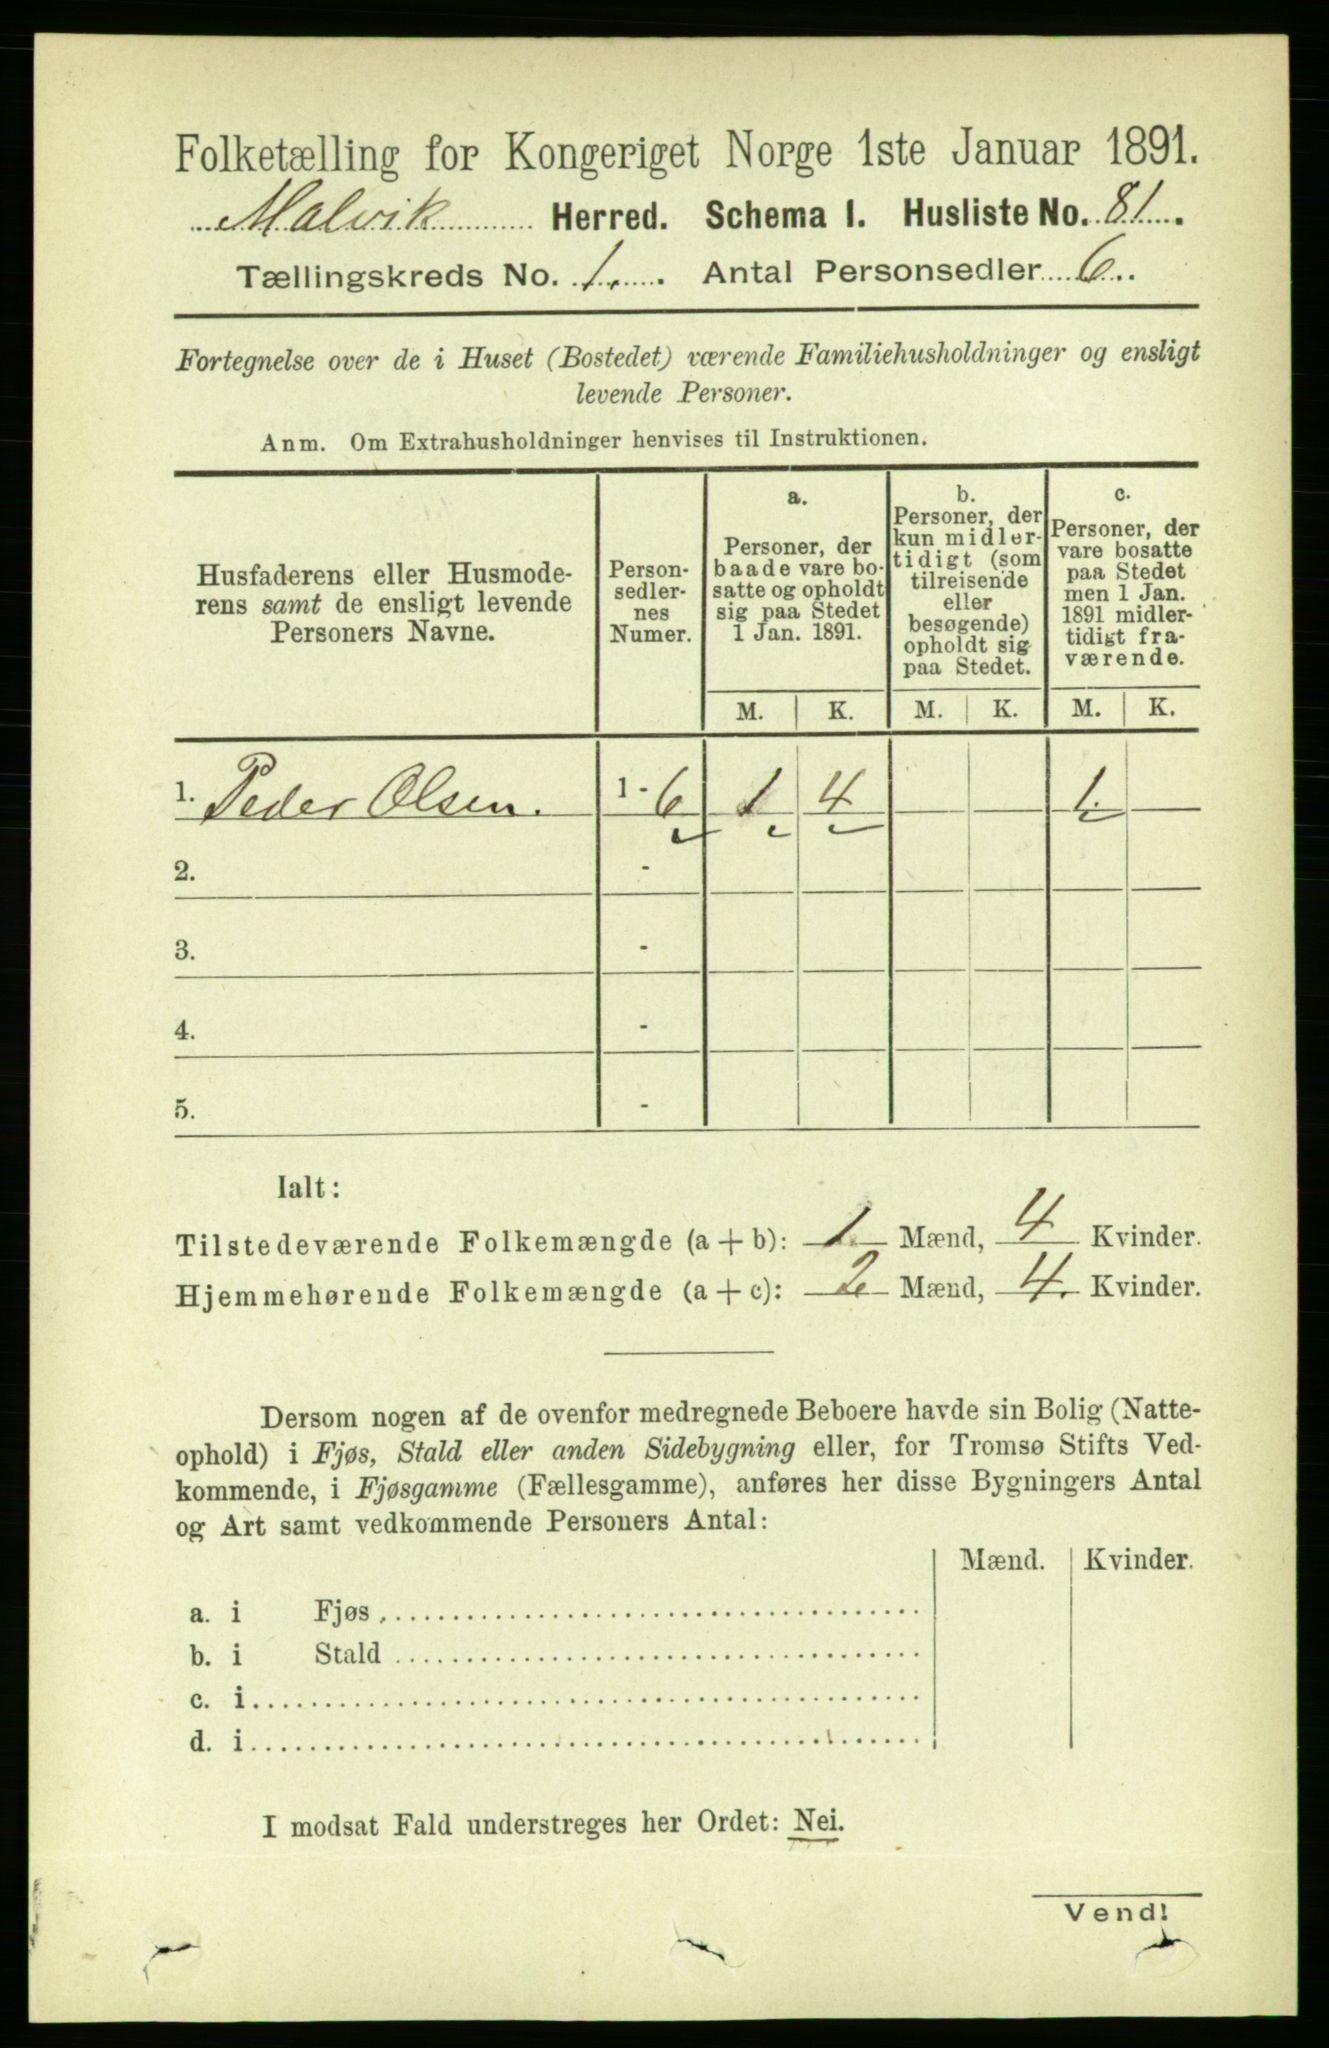 Folketælling for Kongeriget Norge 1ste Januar 1891.
Malvik Herred. Schema I. Husliste No. 81.
Tællingskreds No. 1. Antal Personsedler 6.
Fortegnelse over de i Huset (Bostedet) værende Familiehusholdninger og ensligt
levende Personer.
Anm. Om Extrahusholdninger henvises til Instruktionen.
Husfaderens eller Husmode-
rens samt de ensligt levende
Personers Navne.
Person-
sedler-
nes
Numer.
a.
Personer, der
baade vare bo-
satte og opholdt
sig paa Stedet
1 Jan. 1891.
b.
Personer, der
kun midler-
tidigt (som
tilreisende
eller
besøgende)
opholdt sig
paa Stedet.
c.
Personer, der
vare bosatte
paa Stedet
men 1 Jan.
1891 midler-
tidigt fra-
værende.
M. K. M. K. M. K.
1. Peder Olsen. 1 - 6 1 4 1.
2. -
3. -
4. -
5. -
Ialt:
Tilstedeværende Folkemængde (a + b): 1 Mænd, 4 Kvinder.
Hjemmehørende Folkemængde (a + c): 2 Mænd, 4. Kvinder.
Dersom nogen af de ovenfor medregnede Beboere havde sin Bolig (Natte-
ophold) i Fjøs, Stald eller anden Sidebygning eller, for Tromsø Stifts Ved-
kommende, i Fjøsgamme (Fællesgamme), anføres her disse Bygningers Antal
og Art samt vedkommende Personers Antal:
Mænd. Kvinder.
a. i Fjøs
b. i Stald
c. i
d. i
I modsat Fald understreges her Ordet: Nei.
Vend!